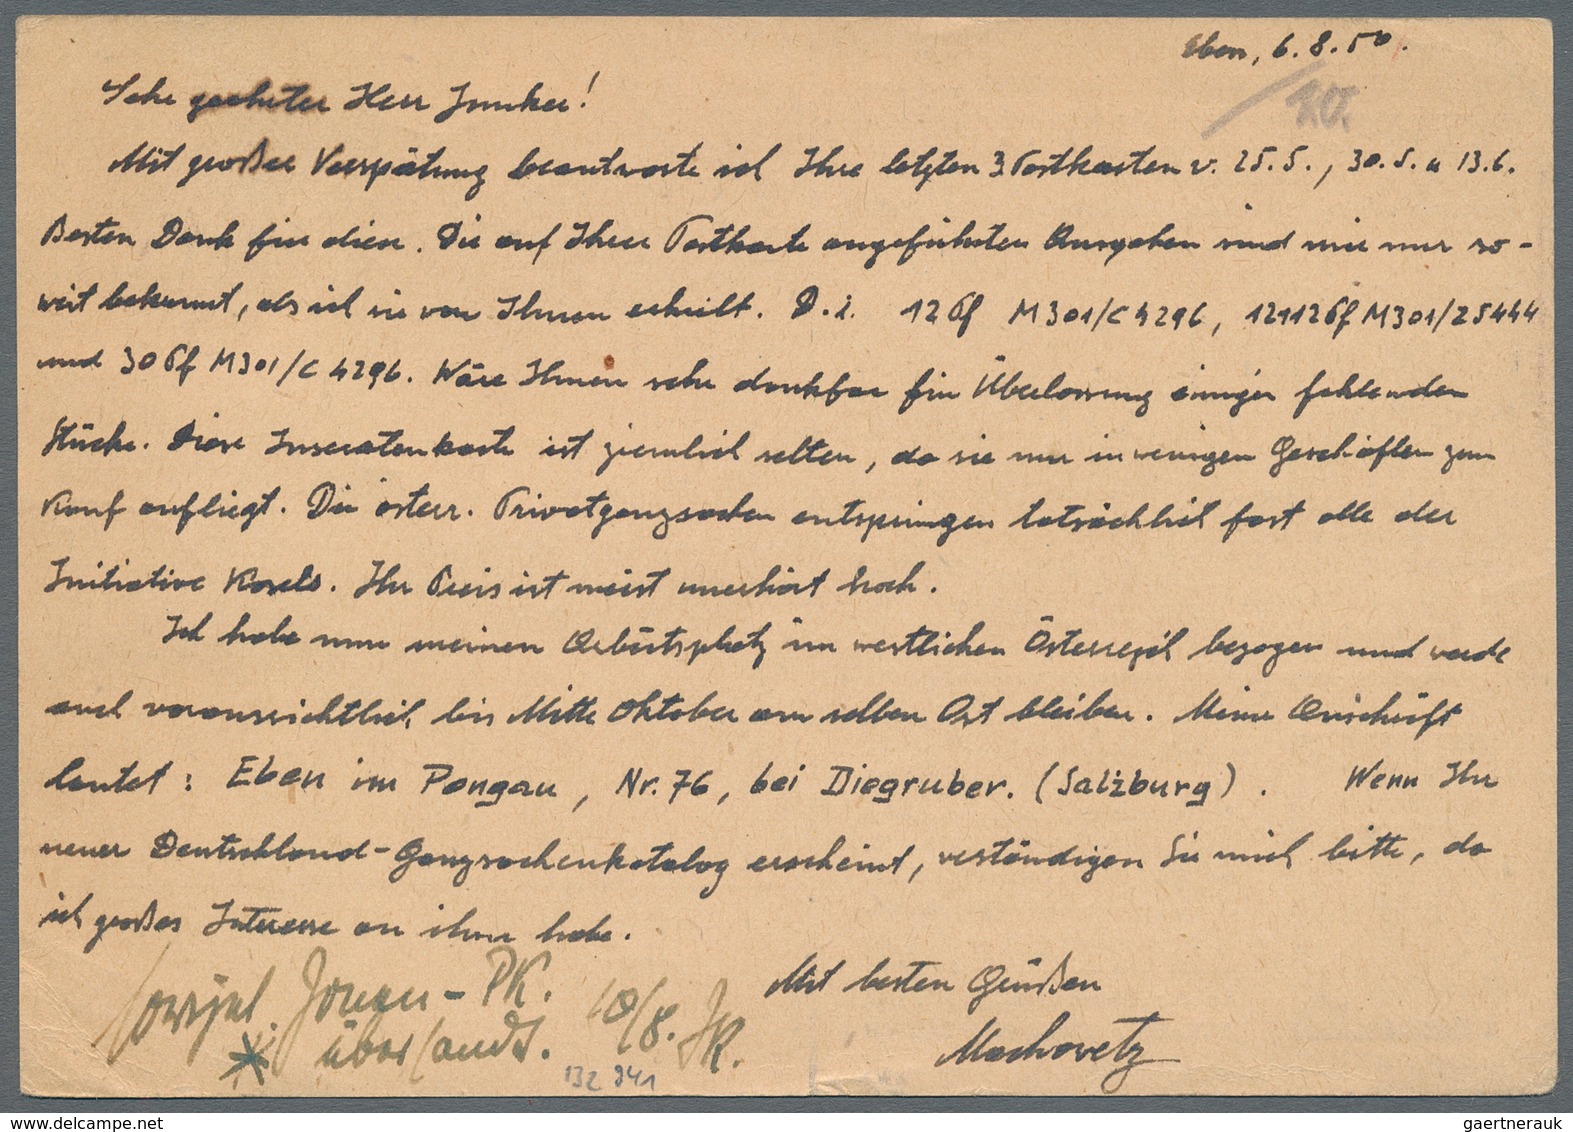 Eben, 6.8.50.
20.
Sehr geehrter Herr Junker!
Mit großer Verspätung beantworte ich Ihre letzten 3 Postkarten v. 25.5., 30.5. u 13.6.
Besten Dank für diese. Die auf Ihrer Postkarte angeführten Ausgaben sind mir nur so-
weit bekannt, als ich sie von Ihnen erhielt. D.i. 12 Pf M301/C4296, 12+12 Pf M301/Z5444
und 30 Pf M301/C4296. Wäre Ihnen sehr dankbar für Überlassung einiger fehlenden
Stücke. Diese Inseratenkarte ist ziemlich selten, da sie nur in wenigen Geschäften zum
Kauf aufliegt. Die österr. Privatganzsachen entspringen tatsächlich fast alle der
Initiative Kosels. Ihr Preis ist meist unerhört hoch.
Ich habe nun meinen Arbeitsplatz im westlichen Österreich bezogen und werde
auch voraussichtlich bis Mitte Oktober am selben Ort bleiben. Meine Anschrift
lautet: Eben im Pongau, Nr. 76, bei Diegruber. (Salzburg). Wenn Ihr
neuer Deutschland-Ganzsachenkatalog erscheint, verständigen Sie mich bitte, da
ich großes Interesse an ihm habe.
Mit besten Grüßen
Machovetz
Sowjet. Zonen-PK.
übersandt. 10/8. JK.
132 941
gaertnerauk